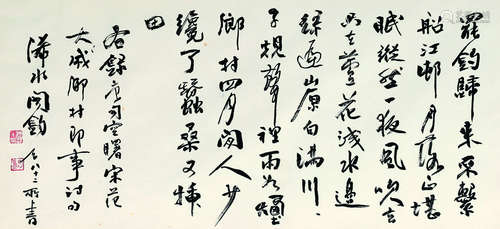 罷釣歸來不繫
船江邨月落正堪
眠縱然一夜風吹去
只在蘆花淺水邊
綠遍山原白滿川
子規聲裡雨如煙
鄉村四月閒人少
纔了蠶桑又插
田
右錄唐司空曙宋范
大成鄉村即事詩句
浠水聞鈞
八十三